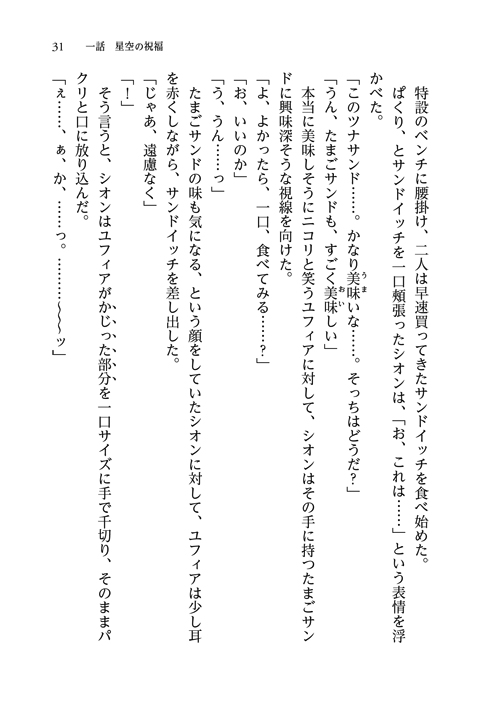 31　一話　星空の祝福
　特設のベンチに腰掛け、二人は早速買ってきたサンドイッチを食べ始めた。
　ぱくり、とサンドイッチを一口頬張ったシオンは、「お、これは……」という表情を浮
かべた。
「このツナサンド……。かなり美味いな……。そっちはどうだ？」
「うん、たまごサンドも、すごく美味しい」
　本当に美味しそうにニコリと笑うユフィアに対して、シオンはその手に持つたまごサン
ドに興味深そうな視線を向けた。
「よ、よかったら、一口、食べてみる……？」
「お、いいのか」
「う、うん……っ」
　たまごサンドの味も気になる、という顔をしていたシオンに対して、ユフィアは少し耳
を赤くしながら、サンドイッチを差し出した。
「じゃあ、遠慮なく」
「！」
　そう言うと、シオンはユフィアがかじった部分を一口サイズに手で千切り、そのままパ
クリと口に放り込んだ。
「ぇ……、ぁ、か、……っ。…………～～～ッ」